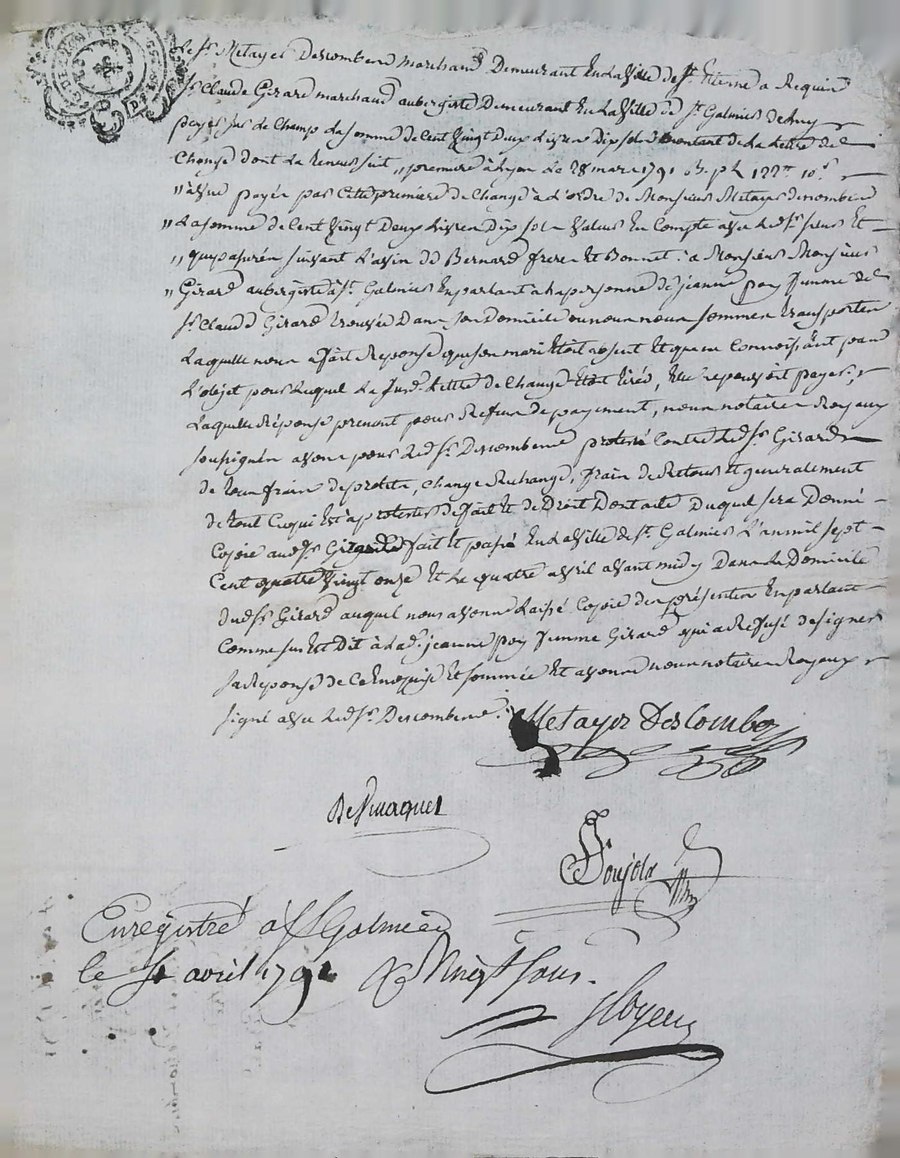 Le Sr. Metayer Descombes marchand Demeurant En la Ville de St. Etienne a Requis
Sr. Claude Girard marchand aubergiste Demeurant En la Ville de St. Galmier de luy
payer sur le Champ la somme de Cent Vingt Deux Livres Dix sols montant de la lettre de
Change dont la teneur suit, „ premiere à Lyon le 28 mars 1791 B. p. L 122ᵗᵗ 10ˢ
„ payée par Cette premiere de Change à L'ordre de Monsieur Metayer Descombes
„ La somme de Cent Vingt Deux Livres Dix sols Valeur En Compte avec led. Sr. plus Et
„ que passerés suivant L'avis de Bernard freres Et Bonnet : a Monsieur Monsieur
„ Girard aubergiste à St. Galmier En parlant a la personne de jeanne pon femme de
Sr. Claude Girard trouvée Dans son Domicile ou nous nous sommes transportés
Laquelle nous a fait Reponse que son mari Etoit absent Et que ne Connoissant pas
L'objet pour Lequel La susd. Lettre de Change Etoit tirée, Elle ne pouvoit payer,
Laquelle Réponse prenant pour Refus de payement, nous notaires Royaux
soussignés avons pour led. Sr. Descombes protesté Contre led. Sr. Girard
de tous frais de protets, Change Rechange, frais de Retour Et generalement
de tout Ce qui Est à protester de fait Et de Droit Dont acte Duquel sera Donné
Copie aud. Sr. Girard fait Et passé En la Ville de St. Galmier L'an mil sept
Cent quatre Vingt onze Et Le quatre avril avant midy Dans le Domicile
Dud. Sr. Girard auquel nous avons Laissé Copie des présentes En parlant
Comme sus Est Dit à lad. jeanne pon femme Girard qui a Refusé de signer
sa Reponse de Ce Enquise Et sommée Et avons nous notaires Royaux
signé avec led. Sr. Descombes.
Metayer Descombes
Pujols
Enregistré à St Galmier
le 4 avril 1791 Vingt sous.